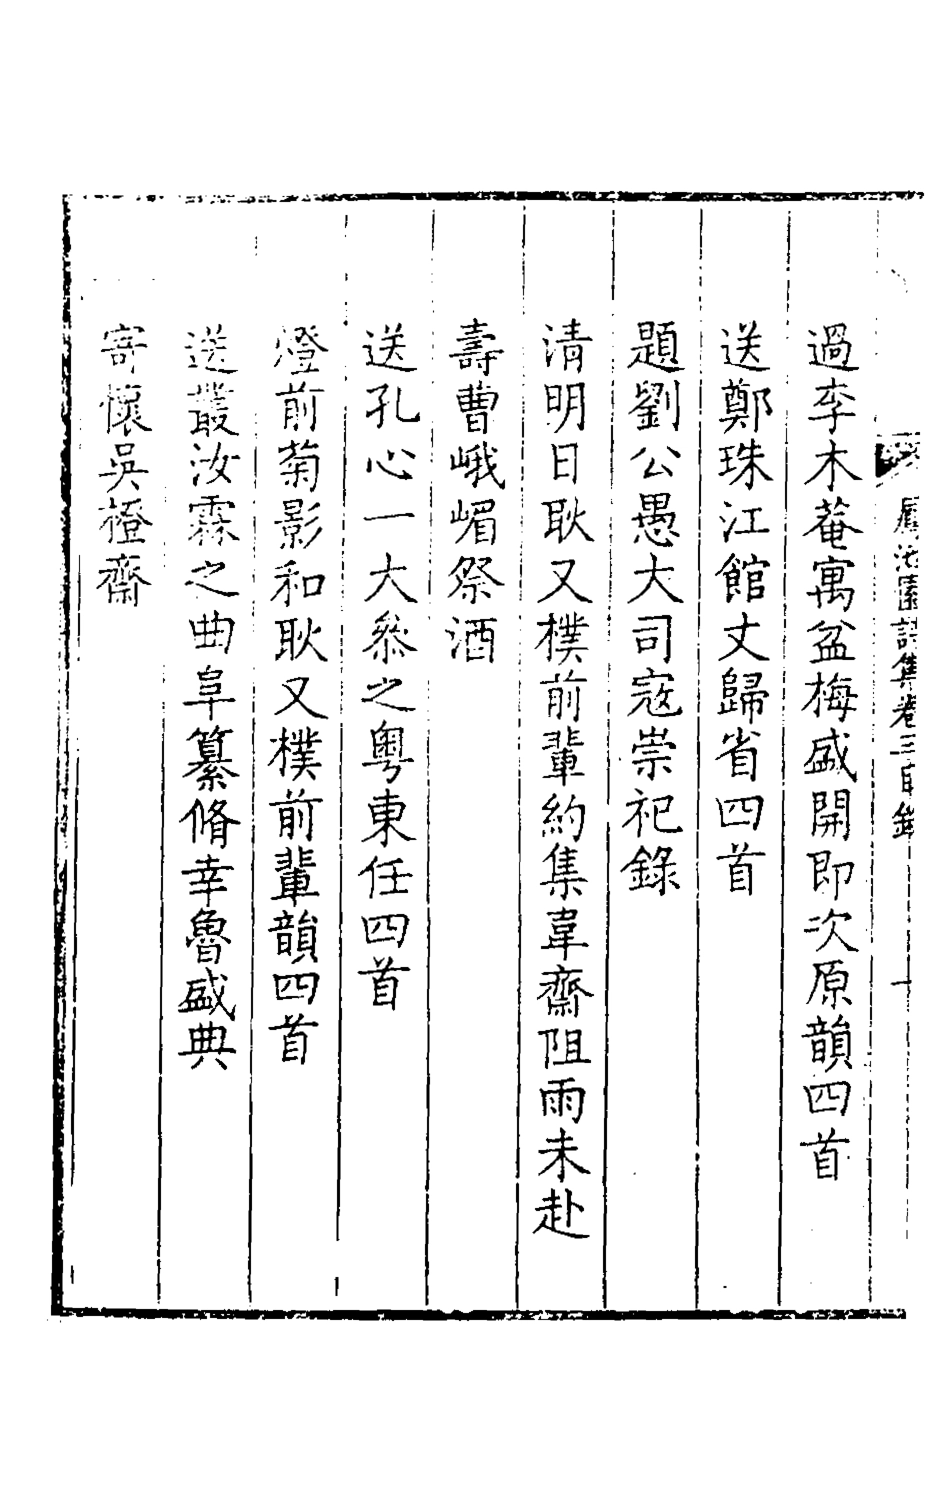 過李木菴寓盆梅盛開即次原韻四首
送鄭珠江館丈歸省四首
題劉公愚大司寇崇祀錄
清明日耿又樸前輩約集韋齋阻雨未赴
壽曹峨嵋祭酒
送孔心一大叅之粵東任四首
燈前菊影和耿又樸前輩韻四首
送叢汝霖之曲阜纂脩幸魯盛典
寄懷吳橙齋
鳳池園詩集卷三目錄 一